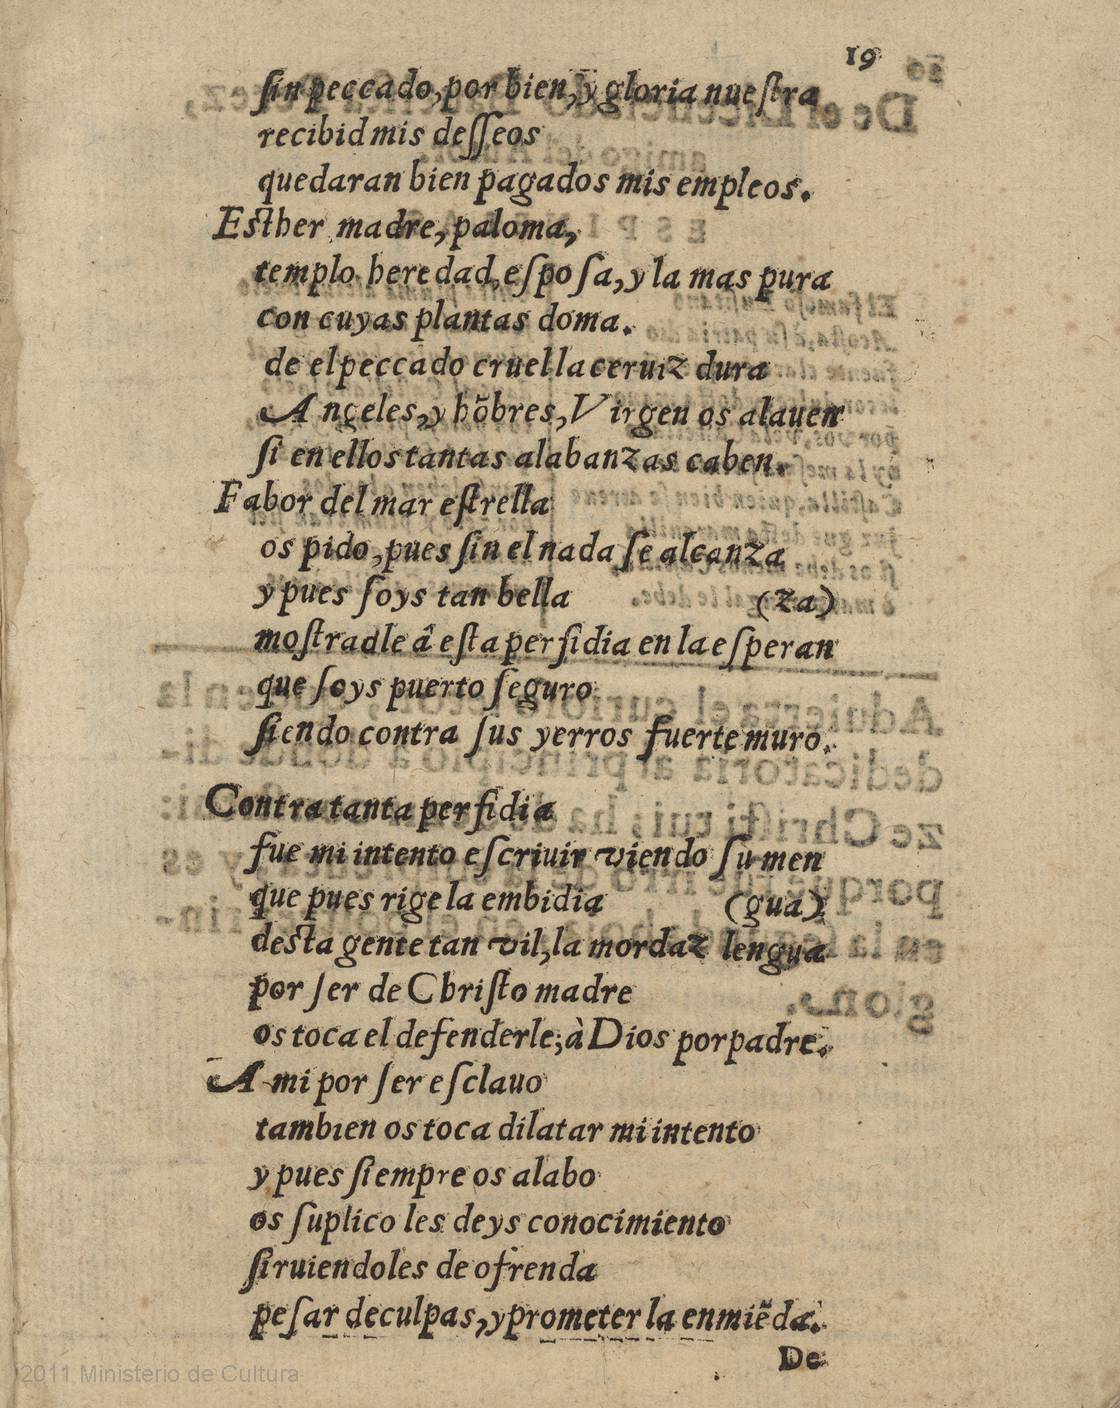 19
sin peccado, por bien, y gloria nuestra
recibid mis desseos
quedaran bien pagados mis empleos.
Esther madre, paloma,
templo heredad, esposa, y la mas pura
con cuyas plantas doma.
de el peccado cruel la ceruiz dura
Angeles, y hõbres, Virgen os alauen
si en ellos tantas alabanzas caben.
Fabor del mar estrella
os pido, pues sin el nada se alcanza
y pues soys tan bella (za)
mostradle â esta perfidia en la esperan
que soys puerto seguro
siendo contra sus yerros fuerte muro.
Contra tanta perfidia
fue mi intento escriuir viendo su men
que pues rige la embidia (gua)
desta gente tan vil, la mordaz lengua
por ser de Christo madre
os toca el defenderle; à Dios por padre.
A mi por ser esclauo
tambien os toca dilatar mi intento
y pues siempre os alabo
os suplico les deys conocimiento
siruiendoles de ofrenda
pesar de culpas, y prometer la enmiẽda.
De
2011 Ministerio de Cultura